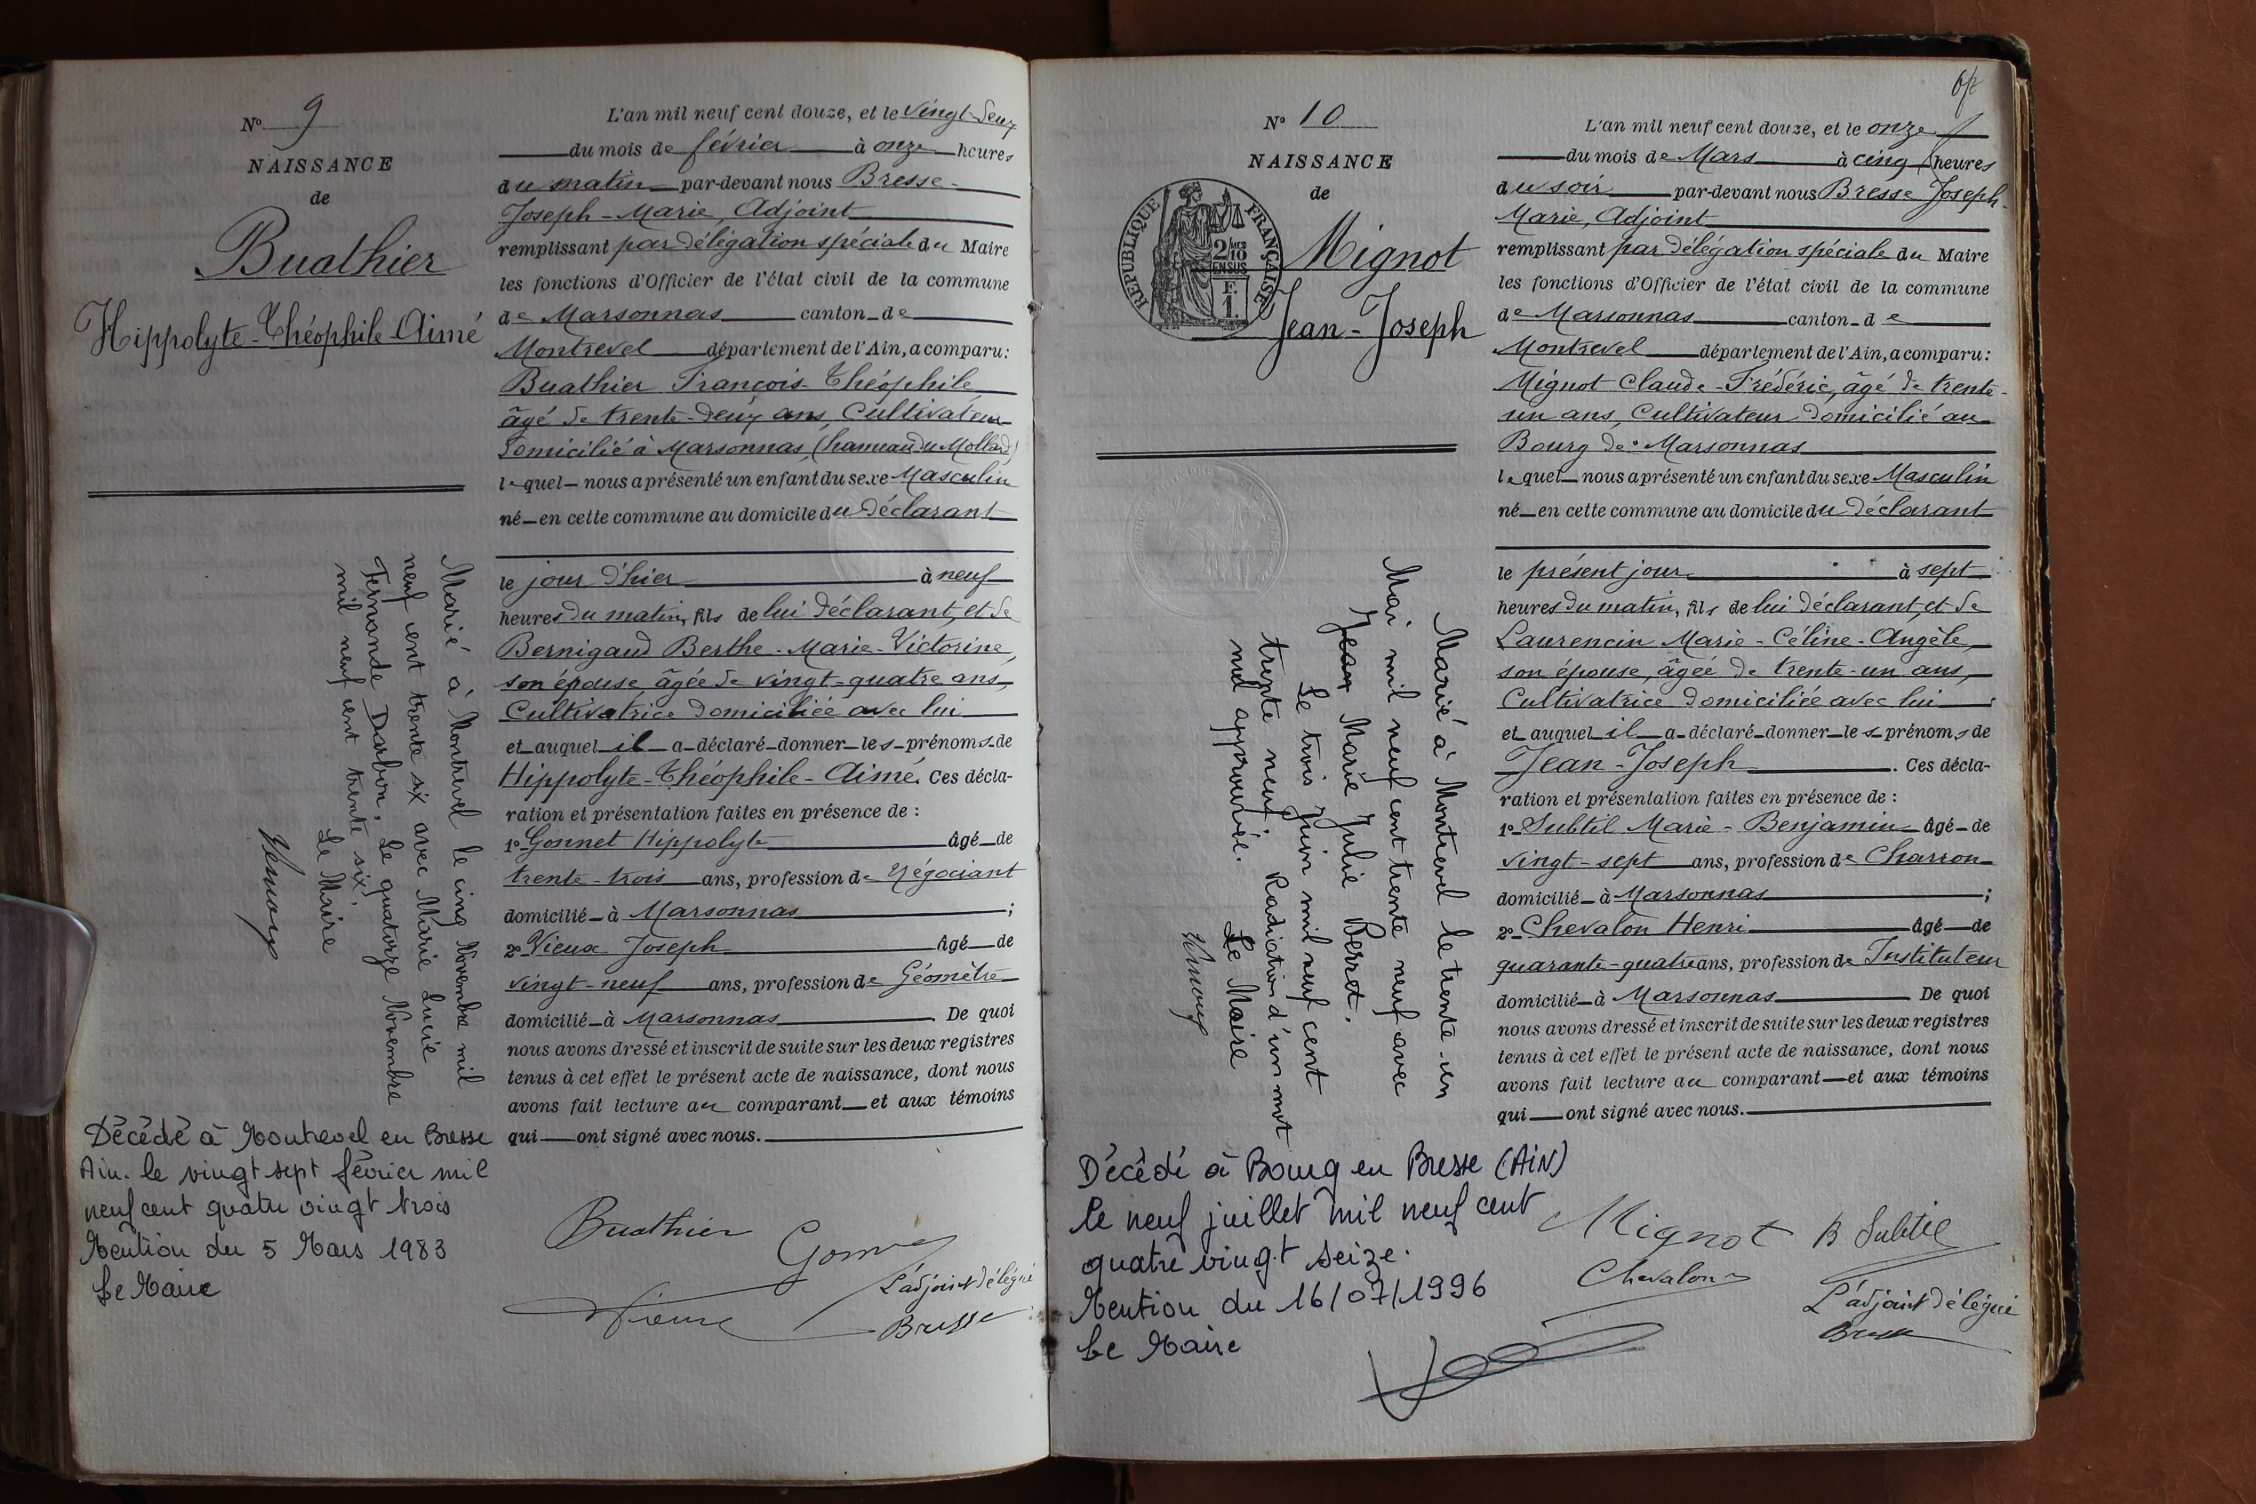 N° 9
NAISSANCE
de
Buathier
Hippolyte-Théophile-Aimé
L'an mil neuf cent douze, et le vingt-deux
du mois de février à onze heures
du matin par-devant nous Bresse-
Joseph-Marie, Adjoint
remplissant par délégation spéciale du Maire
les fonctions d'Officier de l'état civil de la commune
de Marsonnas canton de
Montrevel département de l'Ain, a comparu:
Buathier François-Théophile
âgé de trente-deux ans, Cultivateur
domicilié à Marsonnas, (hameau du Mollard)
lequel nous a présenté un enfant du sexe Masculin
né en cette commune au domicile du déclarant
le jour d'hier à neuf
heures du matin, fils de lui déclarant, et de
Bernigaud Berthe-Marie-Victorine,
son épouse, âgée de vingt-quatre ans,
Cultivatrice domiciliée avec lui
et auquel il a déclaré donner les prénoms de
Hippolyte-Théophile-Aimé. Ces décla-
ration et présentation faites en présence de :
1° Gonnet Hippolyte Agé de
trente-trois ans, profession de Négociant
domicilié à Marsonnas ;
2° Vieux Joseph Agé de
vingt-neuf ans, profession de Géomètre
domicilié à Marsonnas. De quoi
nous avons dressé et inscrit de suite sur les deux registres
tenus à cet effet le présent acte de naissance, dont nous
avons fait lecture au comparant et aux témoins
qui ont signé avec nous.
Marié à Montrevel le cinq Novembre mil
neuf cent trente six avec Marie Lucie
Fernande Darbon. Le quatorze Novembre
mil neuf cent trente six.
Le Maire
Décédé à Montrevel en Bresse
Ain. le vingt sept février mil
neuf cent quatre vingt trois
Mention du 5 Mars 1983
Le Maire
Buathier
Gonnet
Vieux
L'adjoint délégué
Bresse
N° 10
NAISSANCE
de
RÉPUBLIQUE FRANÇAISE
2/10 EN SUS
F. 1.
Mignot
Jean-Joseph
L'an mil neuf cent douze, et le onze
du mois de Mars à cinq heures
du soir par-devant nous Bresse Joseph-
Marie, Adjoint
remplissant par délégation spéciale du Maire
les fonctions d'Officier de l'état civil de la commune
de Marsonnas canton de
Montrevel département de l'Ain, a comparu:
Mignot Claude-Frédéric, âgé de trente-
un ans, Cultivateur domicilié au
Bourg de Marsonnas
lequel nous a présenté un enfant du sexe Masculin
né en cette commune au domicile du déclarant
le présent jour à sept
heures du matin, fils de lui déclarant, et de
Laurencin Marie-Céline-Angèle,
son épouse, âgée de trente-un ans,
Cultivatrice domiciliée avec lui
et auquel il a déclaré donner les prénoms de
Jean-Joseph. Ces décla-
ration et présentation faites en présence de :
1° Subtil Marie-Benjamin Agé de
vingt-sept ans, profession de Charron
domicilié à Marsonnas ;
2° Chevalon Henri Agé de
quarante-quatre ans, profession de Instituteur
domicilié à Marsonnas. De quoi
nous avons dressé et inscrit de suite sur les deux registres
tenus à cet effet le présent acte de naissance, dont nous
avons fait lecture au comparant et aux témoins
qui ont signé avec nous.
Marié à Montrevel le trente-un
Mai mil neuf cent trente neuf avec
Jean Marie Julie Berret.
Le trois Juin mil neuf cent
trente neuf. Radiation d'un mot
nul approuvée. Le Maire
Décédé à Bourg en Bresse (AIN)
le neuf juillet mil neuf cent
quatre vingt seize.
Mention du 16/07/1996
Le Maire
Mignot
B Subtil
Chevalon
L'adjoint délégué
Bresse